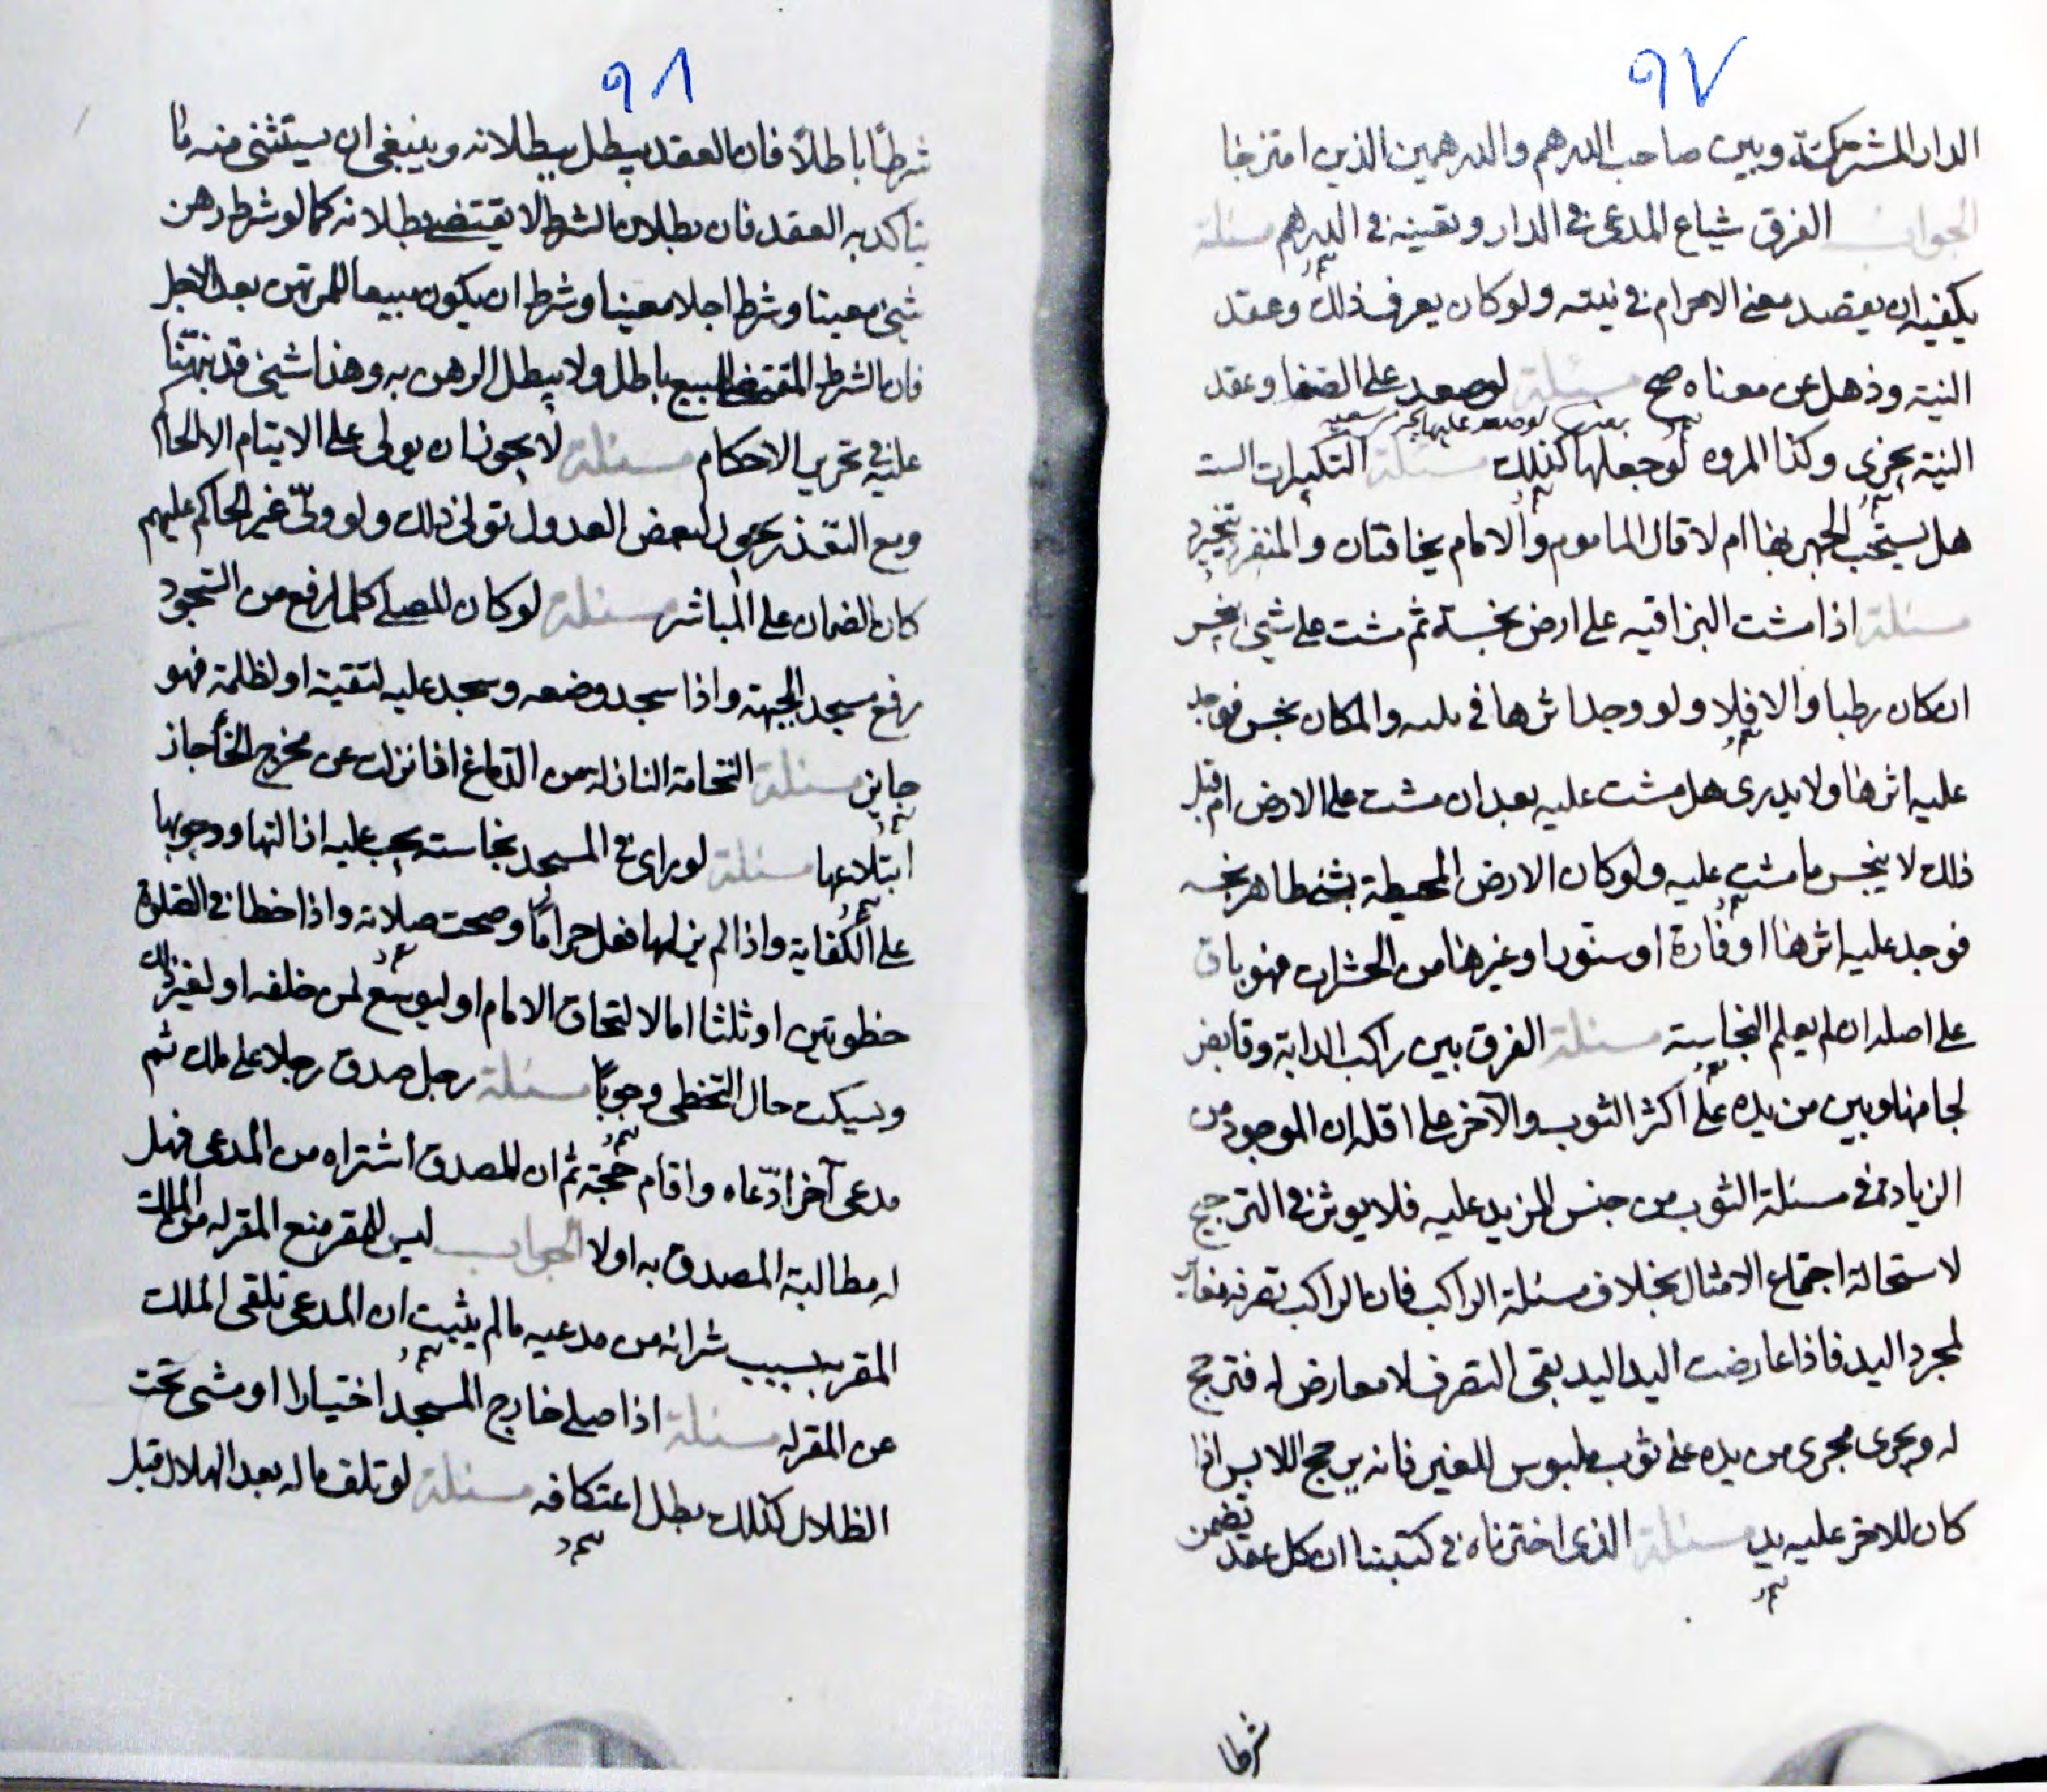 ٩٧
الدار المشتركة وبين صاحب الدرهم والدرهمين الذين امتزجا
الجواب الفرق شياع المدعى في الدار وتعينه في الدرهم مسئلة
يكفيه ان يقصد معنى الاحرام في نيته ولو كان يعرف ذلك وعقد
النية وذهل عن معناه صح مسئلة لو صعد على الصفا وعقد
النية يجزى وكذا المروه لو جعلها كذلك مسئلة التكبيرات الست
هل يستحب الجهر بها ام لا قال الماموم والامام يخافتان والمنفرد يتخير
مسئلة اذا مشت البزاقيه على ارض نجسة ثم مشت على شئ نجس
ان كان رطبا والا فلا ولو وجد اثرها في والمكان نجس فوجد
عليه اثرها ولا يدرى هل مشت عليه بعد ان مشت على الارض ام قبل
ذلك لا ينجس ما مشت عليه ولو كان الارض المحيطة بشئ طاهر نجسه
فوجد عليه اثرها او فارة او سنور او غيرها من الحشرات فهو باق
على اصله ان لم يعلم النجاسة مسئلة الفرق بين راكب الدابة وقابض
لجامها وبين من يده على اكثر الثوب والآخر على اقله ان الموجود من
الزيادة في مسئلة الثوب من جنس المزيد عليه فلا يوثر في الترجيح
لاستحالة اجتماع الامثال بخلاف مسئلة الراكب فان الراكب تصرفه مغاير
لمجرد اليد فاذا عارضت اليد اليد بقى التصرف لا معارض له فترجح
له ويجرى مجرى من يده على ثوب ملبوس للغير فانه يرجح اللابس اذا
كان للاخر عليه يد مسئلة الذى اخترناه في كتبنا ان كل عقد تضمن
شرطا
٩٨
شرطًا باطلاً فان العقد يبطل ببطلانه وينبغى ان يستثنى منه ما
يتاكد به العقد فان بطلان الشرط لا يقتضى بطلانه كما لو شرط رهن
شئ معينا وشرط اجلا معينا وشرط ان يكون مبيعا للمرتهن بعد الاجل
فان الشرط المقتضى للبيع باطل ولا يبطل الرهن به وهذا شئ قد نبهنا
عليه في تحرير الاحكام مسئلة لا يجوز ان يولى على الايتام الا الحاكم
ومع التعذر يجوز لبعض العدول تولى ذلك ولو ولّى غير الحاكم عليهم
كان الضمان على المباشر مسئلة لو كان المصلى كلما رفع من السجود
رفع مسجد الجبهة واذا سجد وضعه وسجد عليه لتقية او لظلمة فهو
جايز مسئلة النخامة النازلة من الدماغ اذا نزلت عن مخرج الخأ جاز
ابتلاعها مسئلة لو راى في المسجد نجاسة يجب عليه ازالتها ووجوبها
على الكفاية واذا لم يزلها فعل حرامًا وصحت صلاته واذا خطا في الصلوة
خطوتين او ثلثا اما لالتحاق الامام او ليوسع لمن خلفه او لغير ذلك
ويسكت حال التخطى وجوبًا مسئلة رجل صدق رجلا على ملك ثم
مدعى آخر ادّعاه واقام حجة ثم ان المصدق اشتراه من المدعى فهل
له مطالبة المصدق به اولا الجواب ليس للمقر منع المقر له من الملك
المقر بسبب شرائه من مدعيه مالم يثبت ان المدعى تلقى الملك
عن المقر له مسئلة اذا صلى خارج المسجد اختيارا او مشى تحت
الظلال كذلك بطل اعتكافه مسئلة لو تلف ماله بعد الهلال قبل